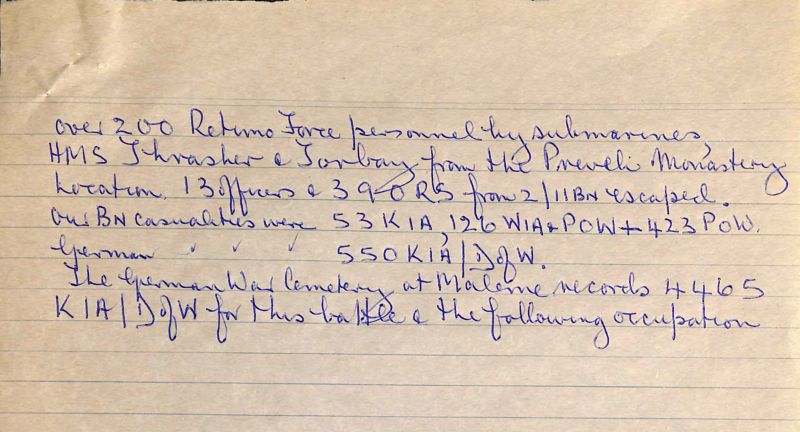 over 200 Retimo Force personnel by submarines,
HMS Thrasher & Torbay from the Preveli Monastery
location. 13 officers & 39 ORS from 2/11BN escaped.
Our BN casualties were 53 KIA, 126 WIA & POW + 423 POW.
German ✓ ✓ ✓ 550 KIA/DofW.
The German War Cemetery at Maleme records 4465
KIA/DofW for this battle & the following occupation